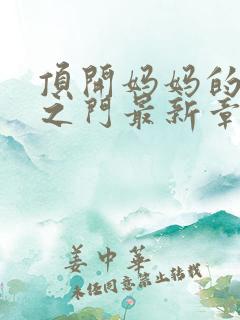 頂開妈妈的
之门最新章
姜中華
未经同意禁止转载